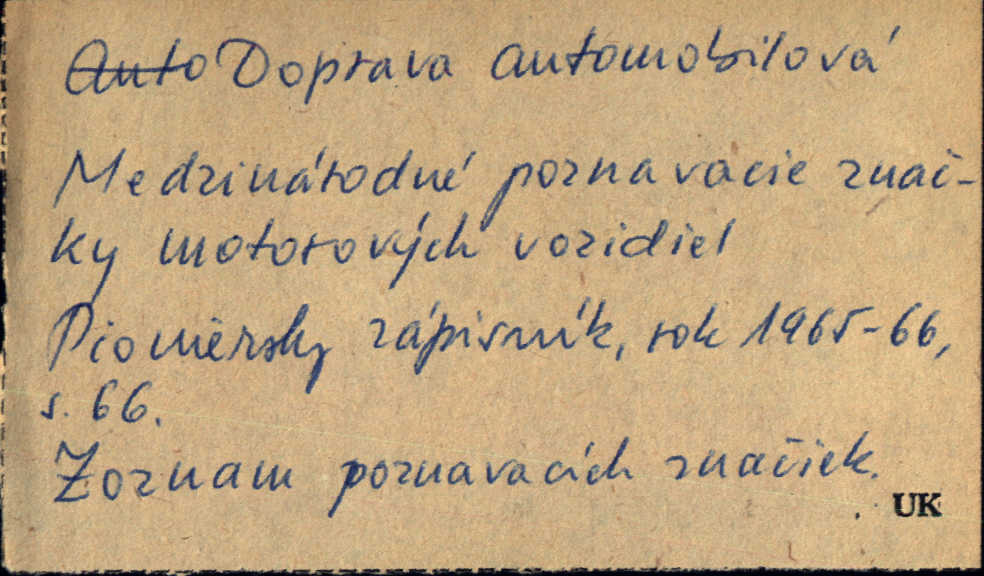 Auto Doprava automobilová
Medzinárodné poznavacie znač-
ky motorových vozidiel
Pioniersky zápisník, rok 1965-66,
s. 66.
Zoznam poznavacích značiek.
UK